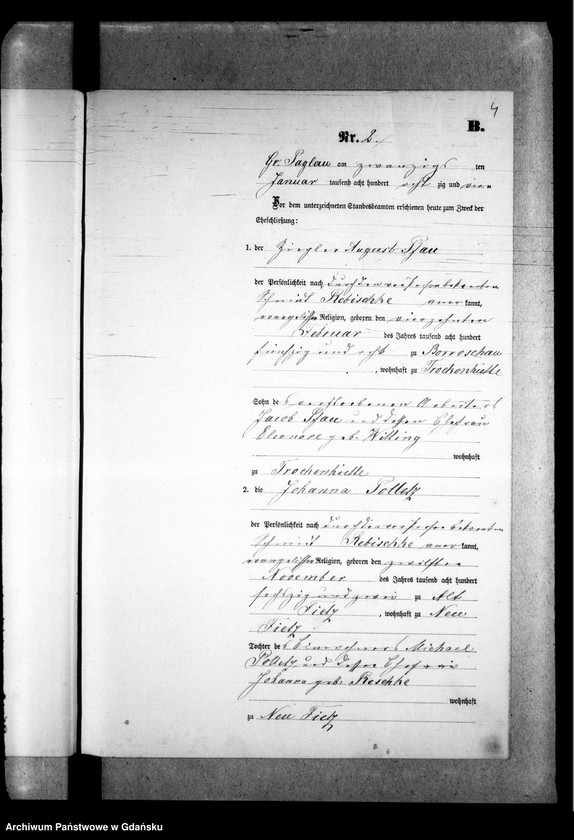 4
B.
Nr. 2.
Gr. Paglau am zwanzigsten
Januar tausend acht hundert achtzig und vier
Vor dem unterzeichneten Standesbeamten erschienen heute zum Zweck der
Eheschließung:
1. der Ziegler August Pfau
der Persönlichkeit nach durch den von Person bekannten
Schmied Rebischke anerkannt,
evangelischer Religion, geboren den vierzehnten
Februar des Jahres tausend acht hundert
fünfzig und acht zu Borroschau
, wohnhaft zu Trockenhütte
Sohn des verstorbenen Arbeiters
Jacob Pfau und dessen Ehefrau
Eleonore geb. Witting
wohnhaft
zu Trockenhütte
2. die Johanna Polletz
der Persönlichkeit nach durch den von Person bekannten
Schmied Rebischke anerkannt,
evangelischer Religion, geboren den zwölften
November des Jahres tausend acht hundert
sechszig und zwei zu Alt
Fietz, wohnhaft zu Neu
Fietz
Tochter des Einwohners Michael
Polletz und dessen Ehefrau
Johanna geb. Reschke
wohnhaft
zu Neu Fietz
Archiwum Państwowe w Gdańsku